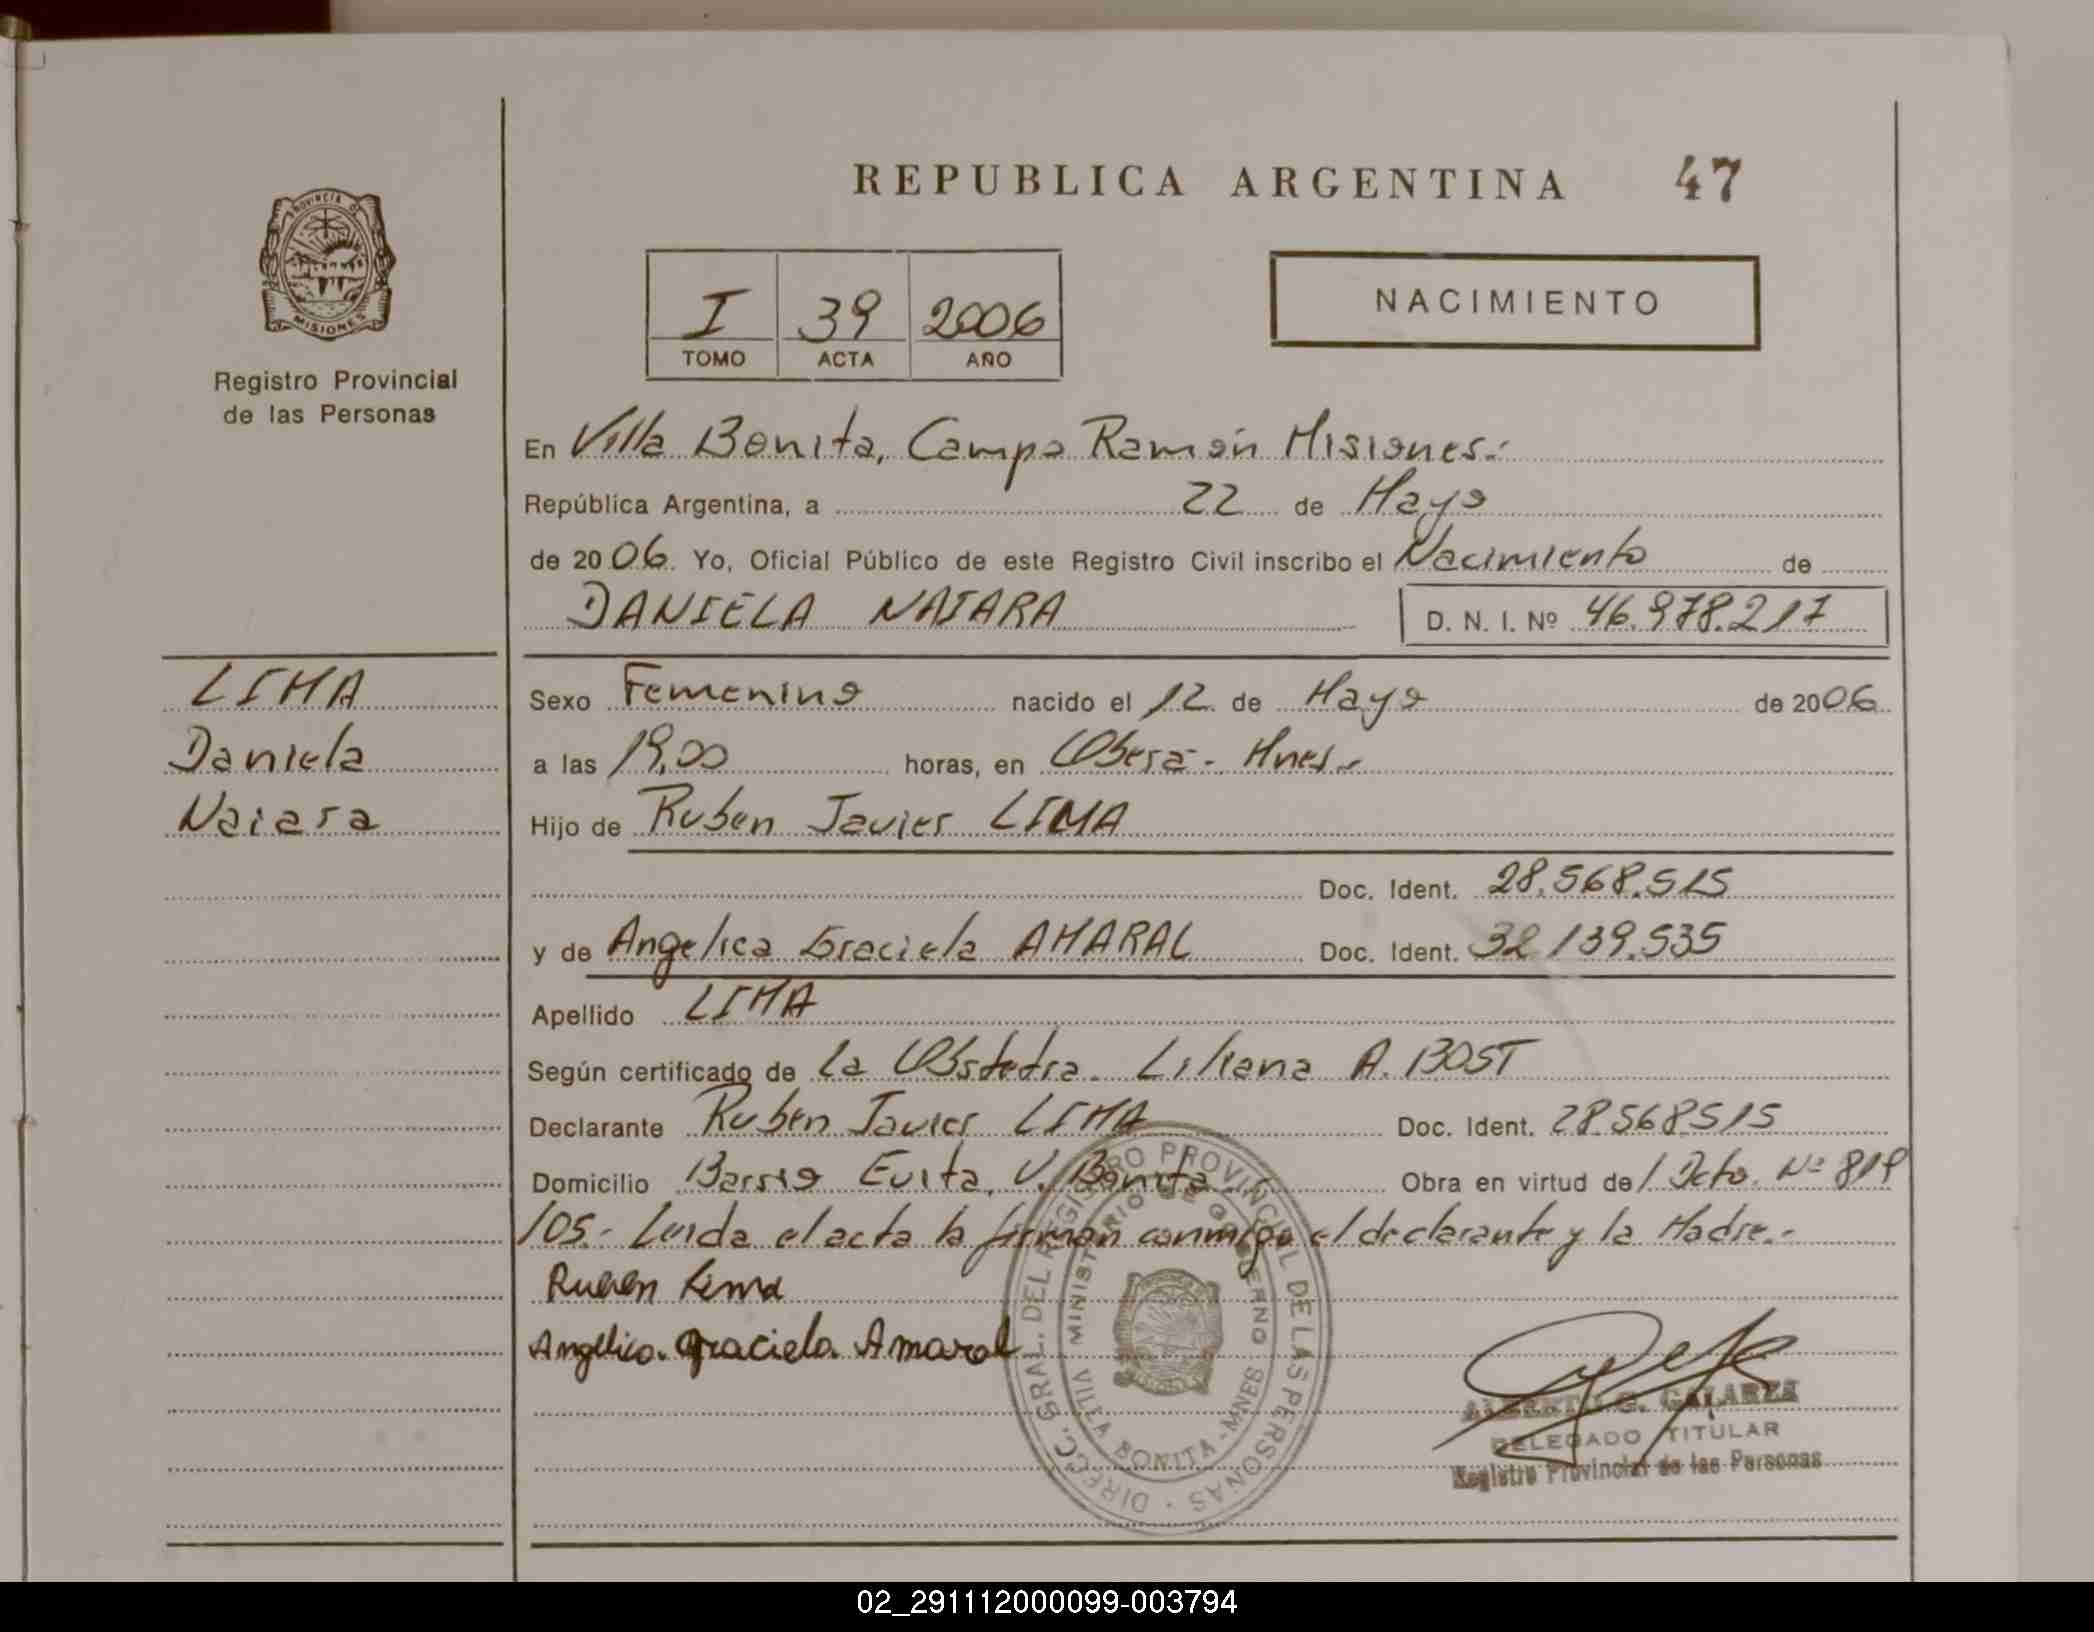 REPUBLICA ARGENTINA 47
PROVINCIA DE
MISIONES
Registro Provincial
de las Personas
I 39 2006
TOMO ACTA AÑO
NACIMIENTO
En Villa Bonita, Campo Ramón Misiones.-
República Argentina, a 22 de Mayo
de 2006. Yo, Oficial Público de este Registro Civil inscribo el Nacimiento de
DANIELA NAIARA D. N. I. Nº 46.978.217
LIMA
Daniela
Naiara
Sexo Femenino nacido el 12 de Mayo de 2006
a las 19,00 horas, en Oberá - Mnes.-
Hijo de Ruben Javier LIMA
Doc. Ident. 28.568.515
y de Angelica Graciela AMARAL Doc. Ident. 32.139.535
Apellido LIMA
Según certificado de la Obstetra. Liliana A. BOST
Declarante Ruben Javier LIMA Doc. Ident. 28.568515
Domicilio Barrio Evita, V. Bonita.- Obra en virtud de / Dcto. Nº 819
/05.- Leida el acta la firman conmigo el declarante y la Madre.-
Ruben Lima
Angelica Graciela Amaral
DIREC. GRAL. DEL REGISTRO PROVINCIAL DE LAS PERSONAS
MINISTERIO DE GOBIERNO
VILLA BONITA - MNES
ALBERTO G. GALARZA
DELEGADO TITULAR
Registro Provincial de las Personas
02_291112000099-003794